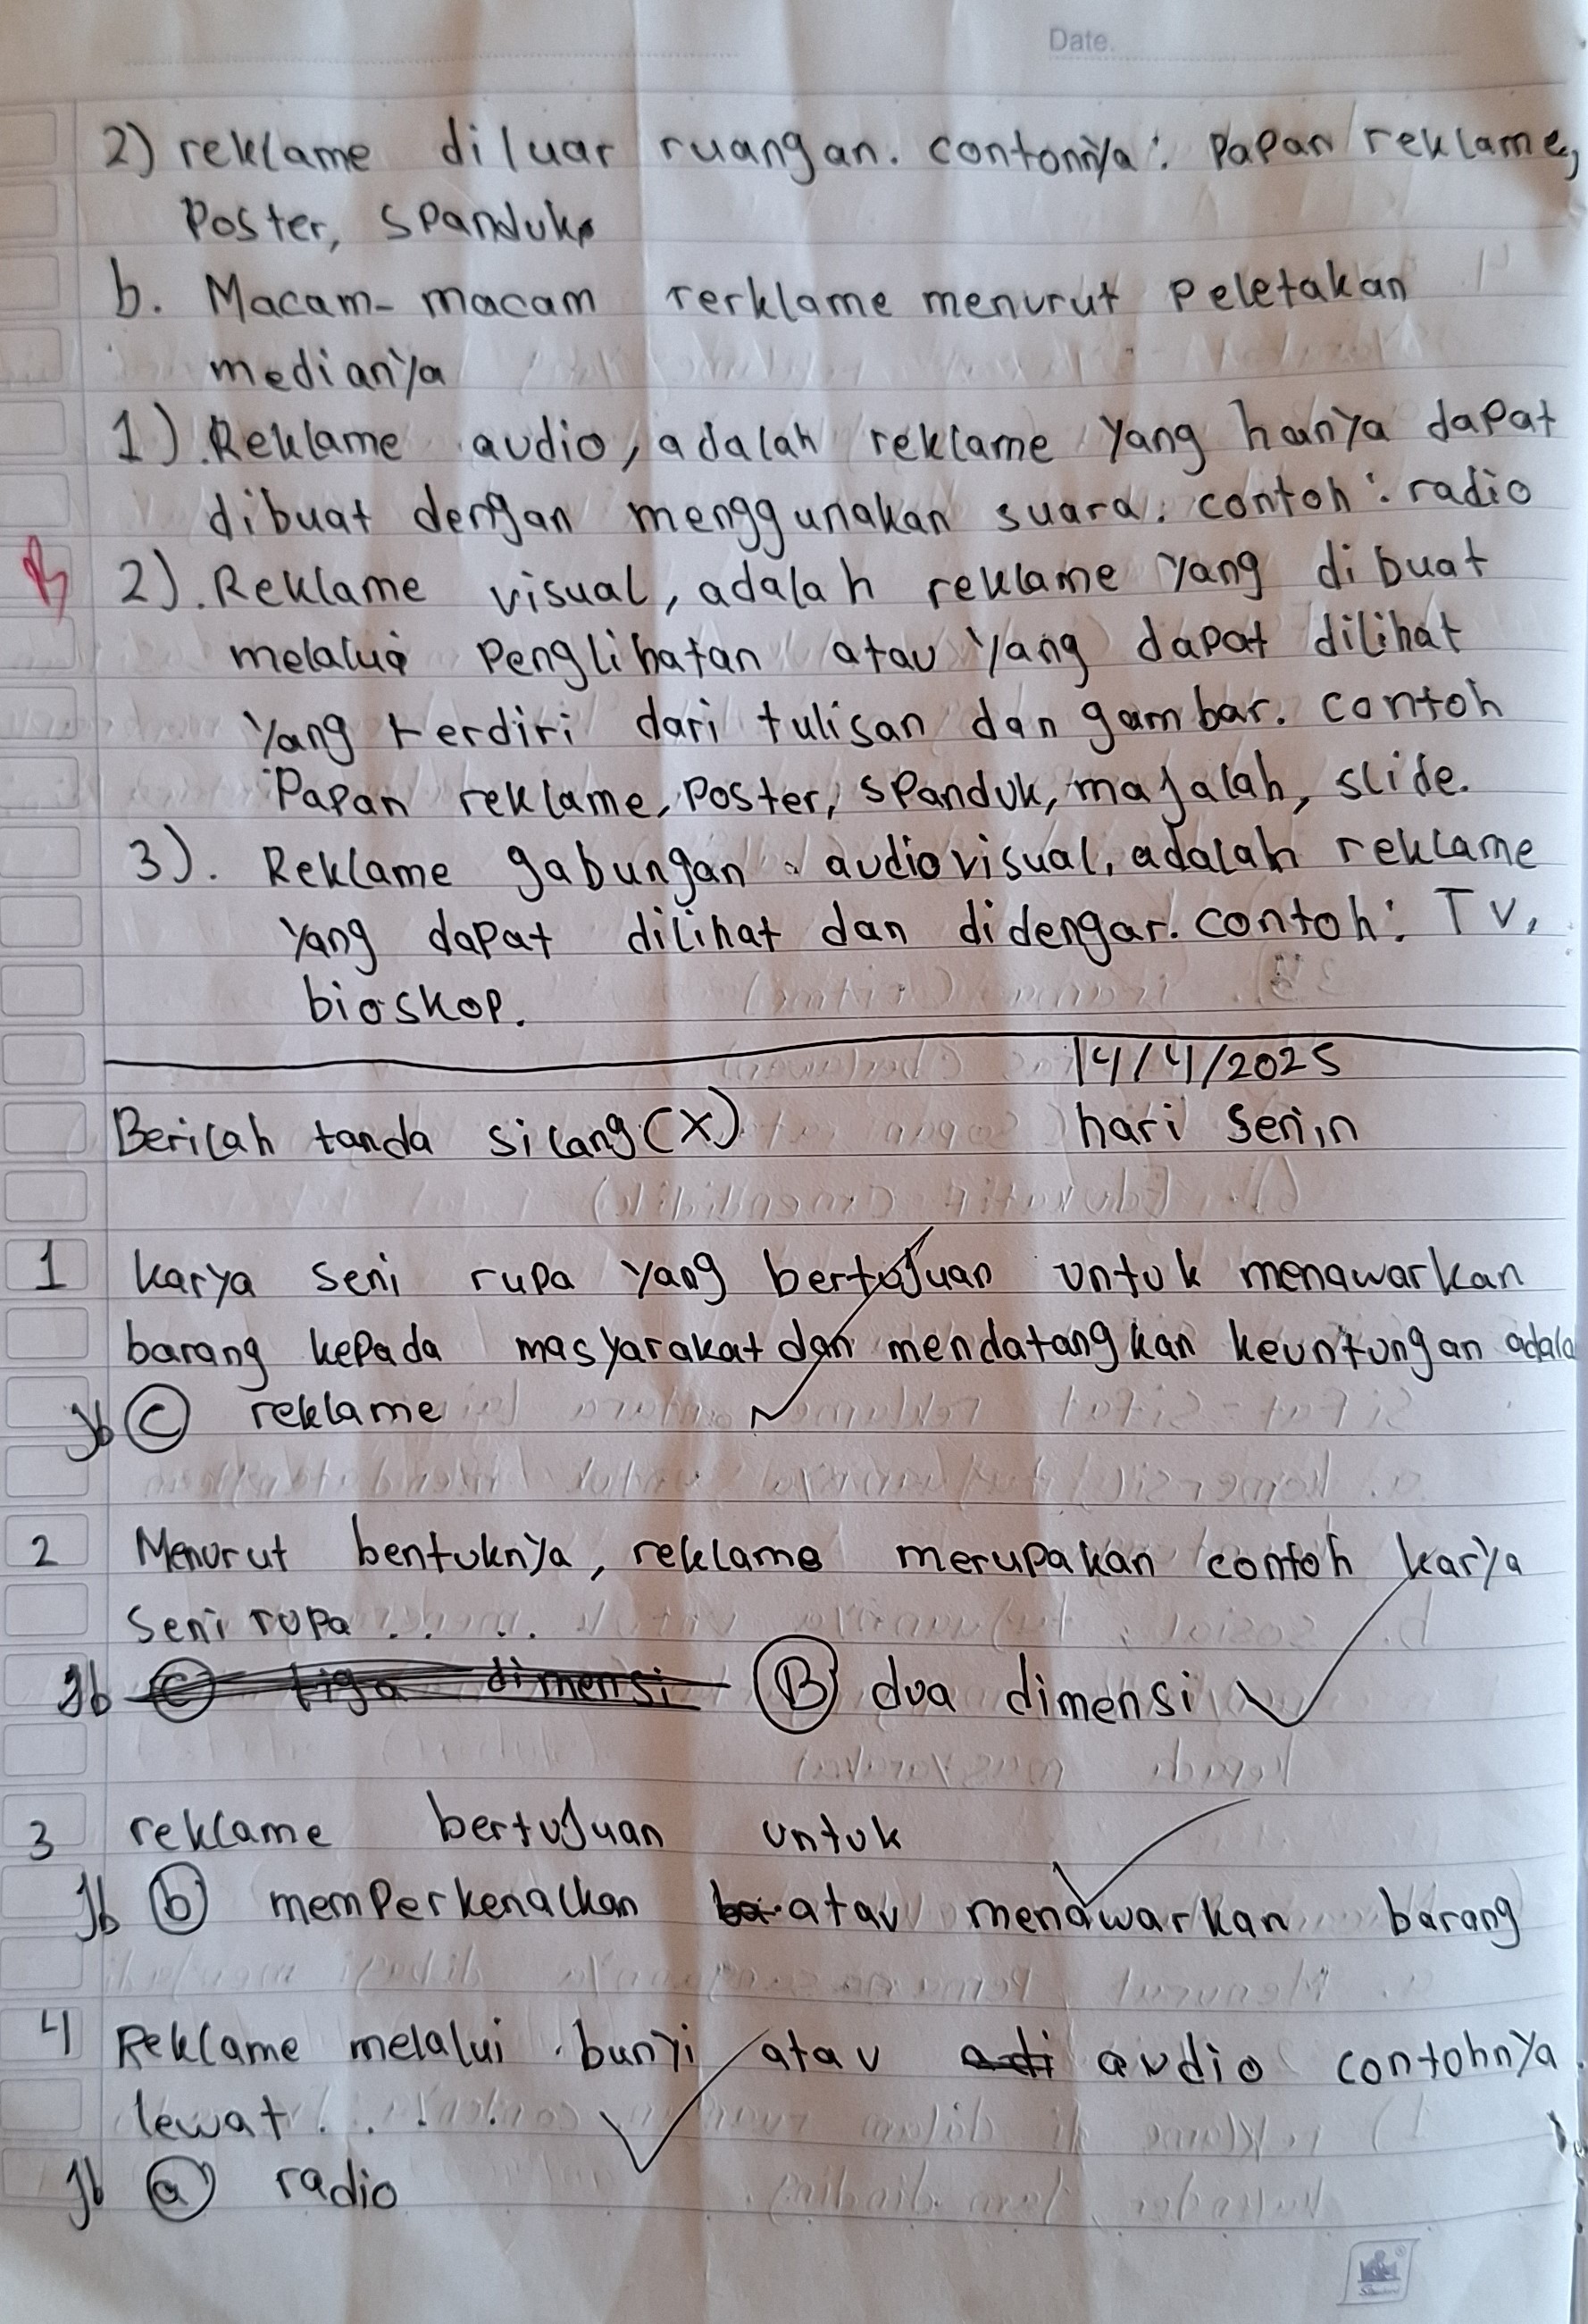 Date.
2) reklame diluar ruangan. contonnya: Papan reklame,
Poster, spanduk
b. Macam-macam rerklame menurut peletakan
medianya
1). Reklame audio, adalah reklame yang hanya dapat
dibuat dengan menggunakan suara. contoh: radio
2). Reklame visual, adalah reklame yang dibuat
melalui penglihatan atau yang dapat dilihat
yang terdiri dari tulisan dan gambar. contoh
Papan reklame, Poster, spanduk, majalah, slide.
3). Reklame gabungan audiovisual, adalah reklame
yang dapat dilihat dan didengar. contoh: TV,
bioskop.
14/4/2025
Berilah tanda silang (X) hari Senin
1 Karya seni rupa yang bertujuan untuk menawarkan
barang kepada masyarakat dan mendatangkan keuntungan adala
jb (C) reklame
2 Menurut bentuknya, reklame merupakan contoh karya
seni rupa . . . . .
jb (C) tiga dimensi (B) dua dimensi
3 reklame bertujuan untuk
jb (b) memperkenalkan atau menawarkan barang
4 Reklame melalui bunyi atau audio contohnya
lewat . . . . .
jb (a) radio